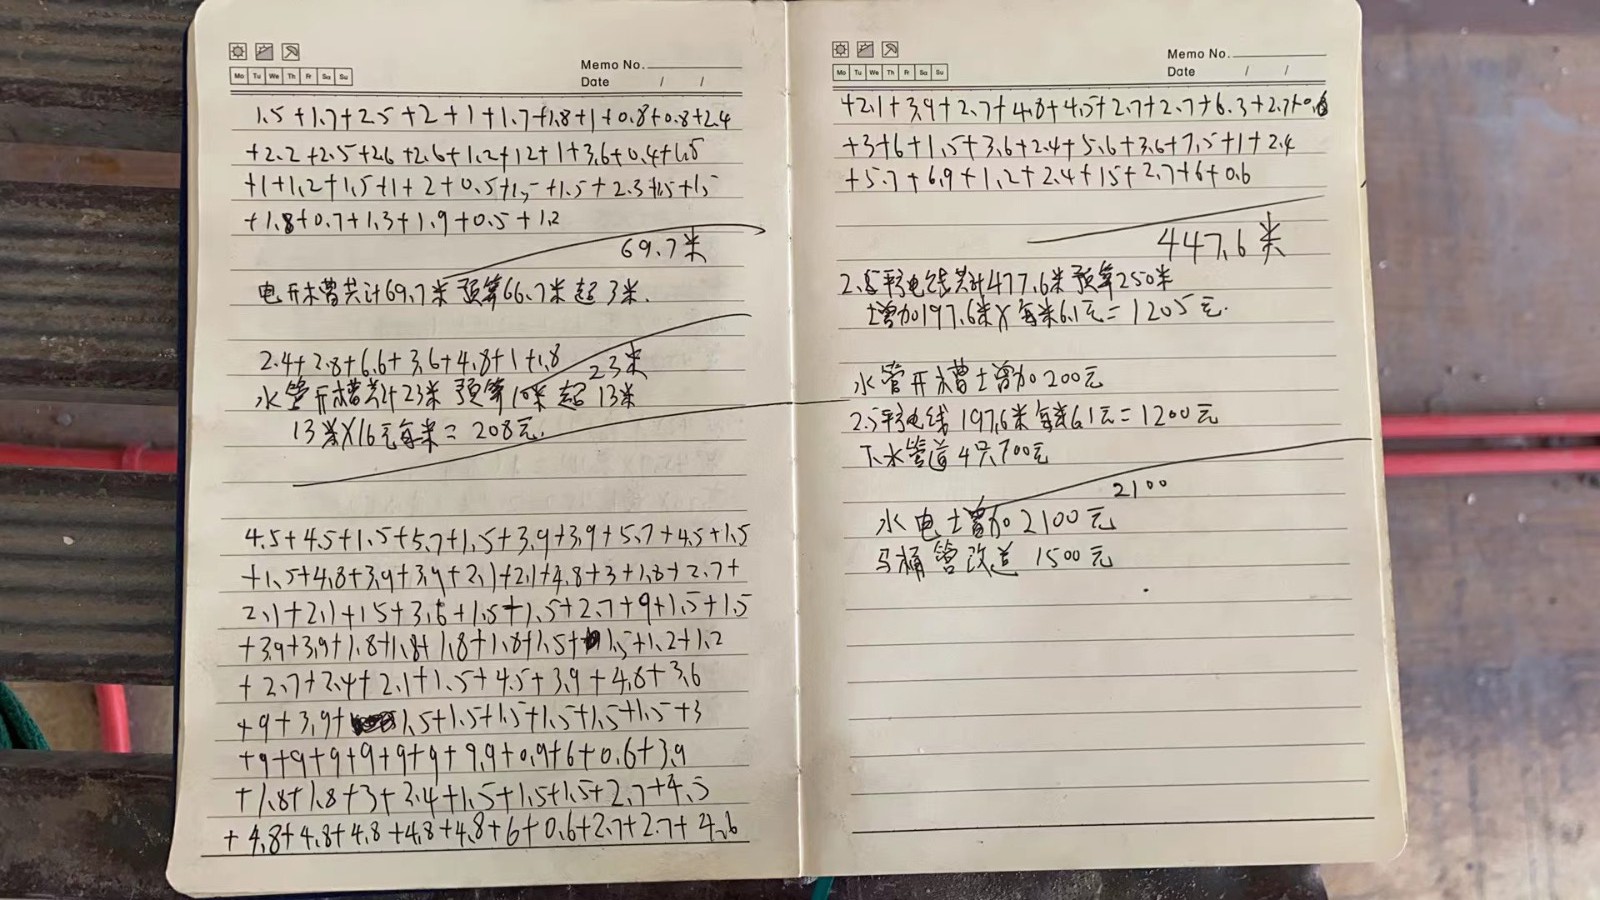 Mo Tu We Th Fr Sa Su
Memo No.
Date / /
1.5+1.7+2.5+2+1+1.7+1.8+1+0.8+0.8+2.4
+2.2+2.5+2.6+2.6+1.2+1.2+1+3.6+0.4+1.5
+1+1.2+1.5+1+2+0.5+1.5+1.5+2.3+1.5+1.5
+1.8+0.7+1.3+1.9+0.5+1.2
69.7米
电开槽共计69.7米 预算66.7米 起3米.
2.4+2.8+6.6+3.6+4.8+1+1.8
23米
水管开槽共计23米 预算10米 起13米
13米X16元每米=208元.
4.5+4.5+1.5+5.7+1.5+3.9+3.9+5.7+4.5+1.5
+1.5+4.8+3.9+3.9+2.1+2.1+4.8+3+1.8+2.7+
2.1+2.1+1.5+3.6+1.5+1.5+2.7+9+1.5+1.5
+3.9+3.9+1.8+1.8+1.8+1.8+1.5+1.5+1.2+1.2
+2.7+2.4+2.1+1.5+4.5+3.9+4.8+3.6
+9+3.9+1.5+1.5+1.5+1.5+1.5+1.5+3
+9+9+9+9+9+9+9.9+0.9+6+0.6+3.9
+1.8+1.8+3+2.4+1.5+1.5+1.5+2.7+4.5
+4.8+4.8+4.8+4.8+4.8+6+0.6+2.7+2.7+4.6
Mo Tu We Th Fr Sa Su
Memo No.
Date / /
+2.1+3.9+2.7+4.8+4.5+2.7+2.7+6.3+2.7+0.6
+3+6+1.5+3.6+2.4+5.6+3.6+7.5+1+2.4
+5.7+6.9+1.2+2.4+1.5+2.7+6+0.6
447.6米
2.5平方电线共计477.6米 预算250米
增加197.6米X每米6.1元=1205元.
水管开槽增加200元
2.5平方电线197.6米每米6.1元=1200元
下水管道4只700元
2100
水电增加2100元
马桶管改道1500元